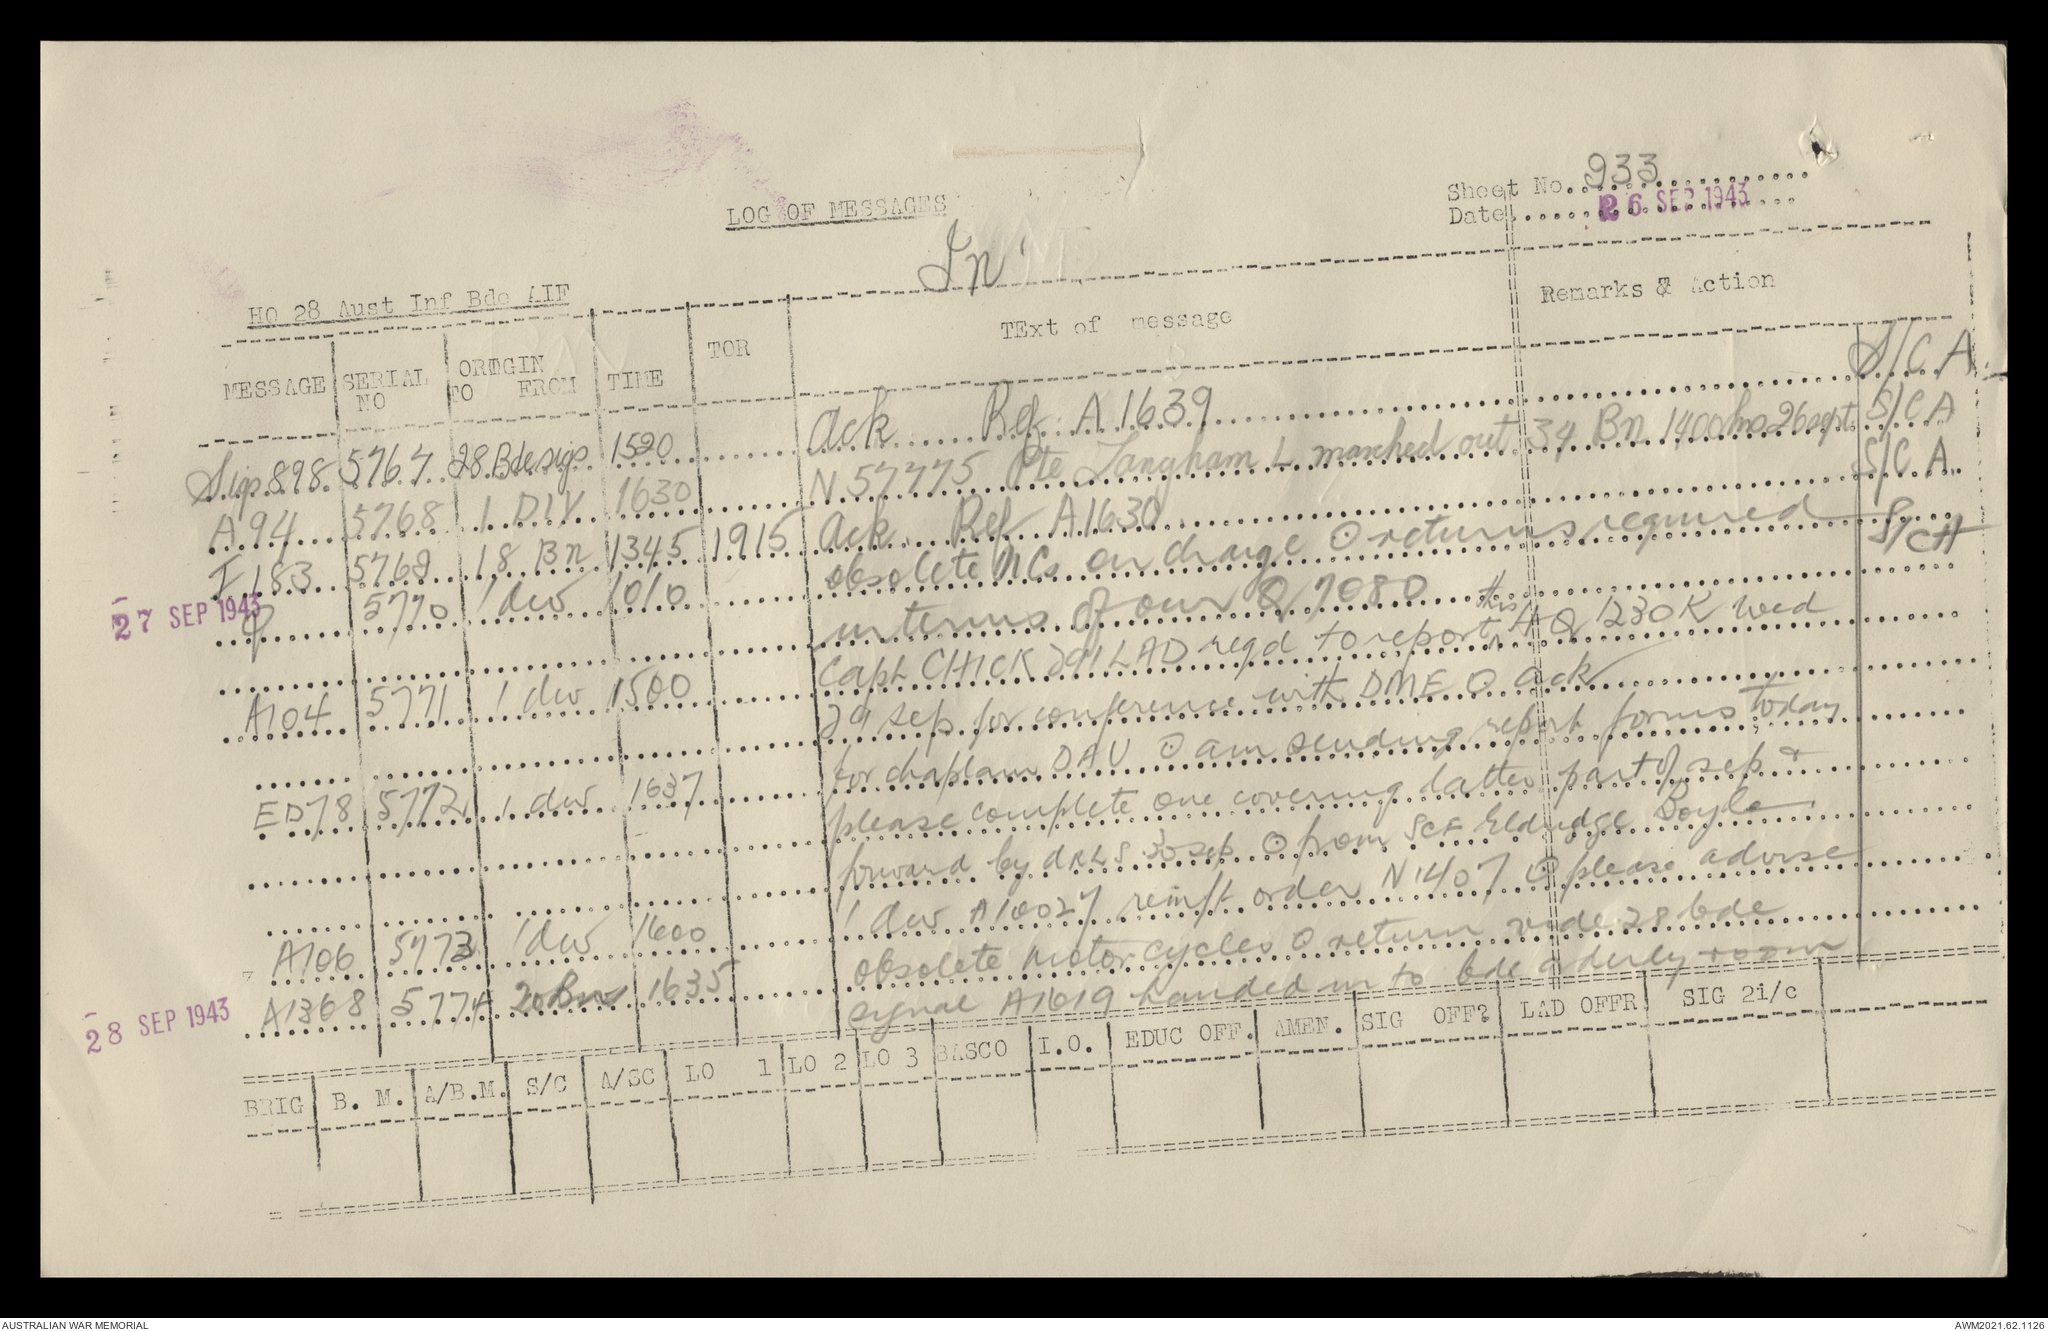 Sheet No. 933
Date 26 SEP 1943
LOG OF MESSAGES
In
HQ 28 Aust Inf Bde AIF
MESSAGE SERIAL NO ORIGIN TO FROM TIME TOR TExt of message Remarks & Action
Sigs 898 5767 28 Bde sigs 1520 Ack Ref A1639 S/C A
A94 5768 1 DIV 1630 N57775 Pte Langham L marched out 34 Bn 1400hrs 26 sept S/C A
I 183 5769 18 Bn 1345 1915 Ack Ref A1630 S/C A
27 SEP 1943
Q 5770 1 div 1010 obsolete MCs on charge O returns required S/C A
in terms of our Q7080
A104 5771 1 div 1500 Capt CHICK 291 LAD reqd to report this HQ 1230K Wed
29 sep for conference with DME O ack
ED78 5772 1 div 1637 for chaplain DAV O am sending report forms today
please complete one covering latter part of sep &
forward by DRLS 30 sep O from SCF Eldridge Doyle
1 div A10027 reinft order N1407 O please advise
A106 5773 1 div 1600 obsolete motor cycles O return vide 28 bde
28 SEP 1943
A1368 5774 20 Bn 1635 signal A1619 handed in to bde orderly room
BRIG B. M. A/B.M. S/C A/SC LO 1 LO 2 LO 3 BASCO I.O. EDUC OFF. AMEN. SIG OFF? LAD OFFR SIG 2i/c
AUSTRALIAN WAR MEMORIAL
AWM2021.62.1126